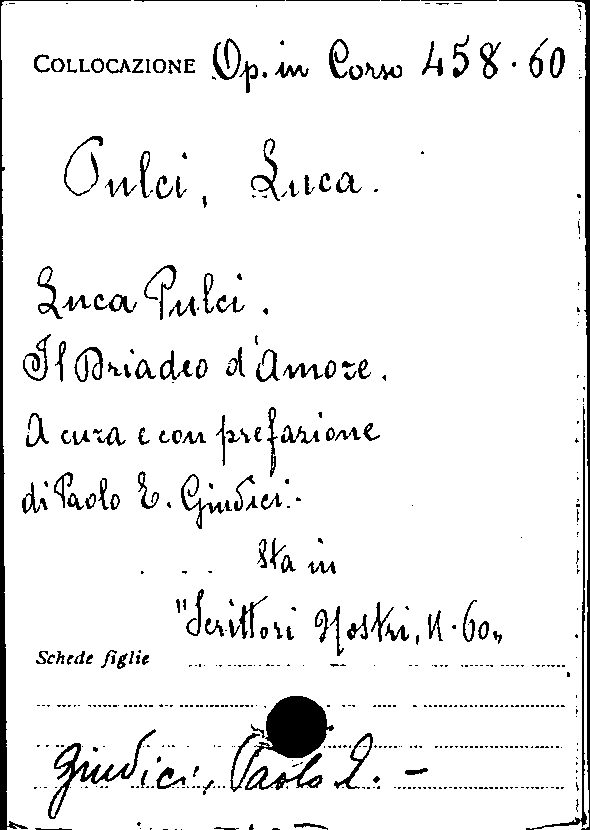 COLLOCAZIONE Op. in Corso 458.60
Pulci, Luca.
Luca Pulci.
Il Driadeo d'Amore.
A cura e con prefazione
di Paolo E. Giudici.
Sta in
"Scrittori Nostri, N.60"
Schede figlie
Giudici, Paolo E. -